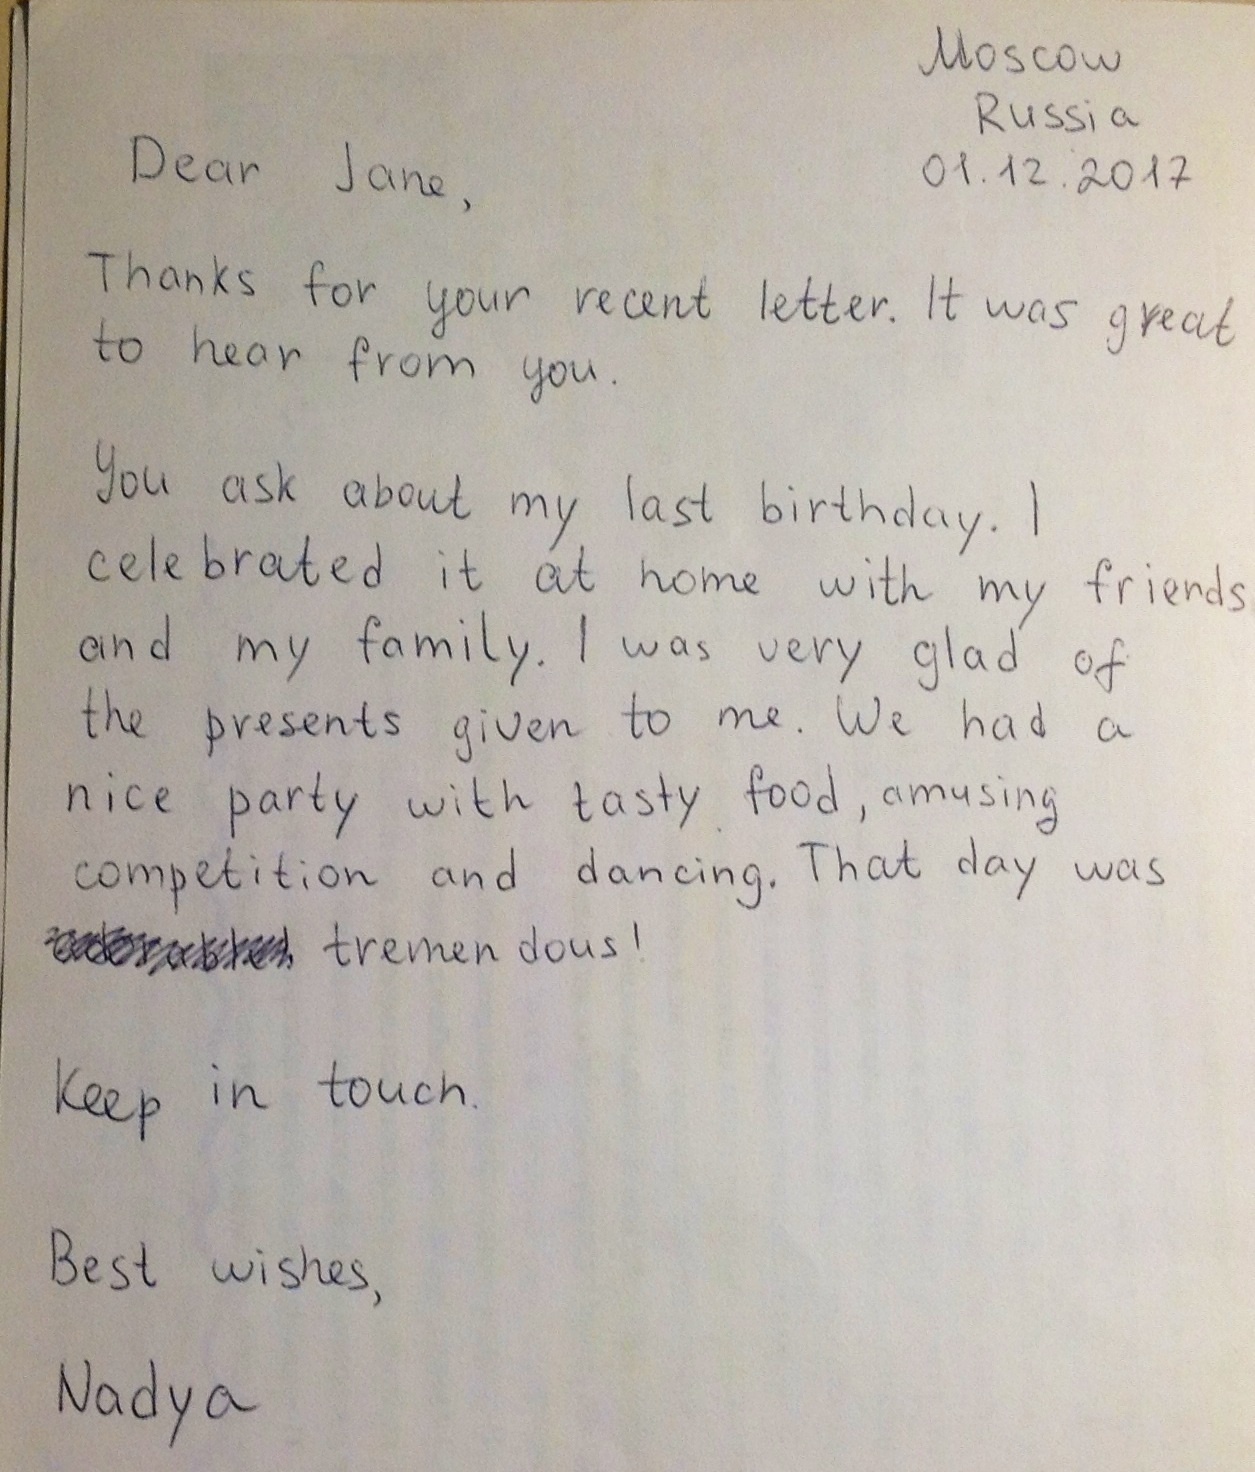 Moscow
Russia
01.12.2017
Dear Jane,
Thanks for your recent letter. It was great
to hear from you.
You ask about my last birthday. I
celebrated it at home with my friends
and my family. I was very glad of
the presents given to me. We had a
nice party with tasty food, amusing
competition and dancing. That day was
tremendous!
Keep in touch.
Best wishes,
Nadya